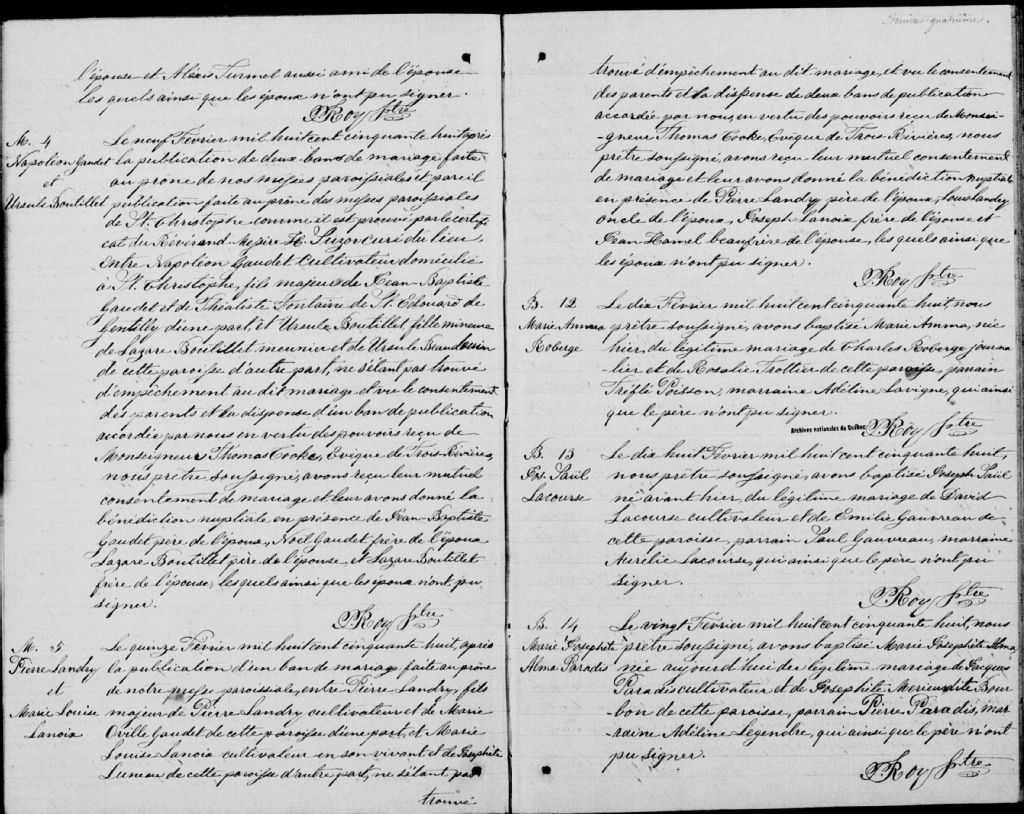 l'épouse et Alexis Turmel aussi ami de l'épouse
les quels ainsi que les époux n'ont pu signer.
P Roy Ptre
M. 4
Napoléon Gaudet
et
Ursule Boutillet
Le neuf Février mil huit cent cinquante huit après
la publication de deux bans de mariage faite
au prône de nos messes paroissiales et pareil
publication faite au prône des messes paroissiales
de St. Christophe comme il est prouvé par le certifi
cat du Révérend Messire H. Suzor curé du lieu,
entre Napoléon Gaudet cultivateur domicilié
à St. Christophe, fils majeur de Jean-Baptiste
Gaudet et de Théatiste Fontaine de St. Edouard de
Gentilly d'une part, et Ursule Boutillet, fille mineure
de Lazare Boutillet meunier et de Ursule Beaudouin
de cette paroisse d'autre part, ne s'étant pas trouvé
d'empêchement au dit mariage et vu le consentement
des parents et la dispense d'un ban de publication
accordée par nous en vertu des pouvoirs reçu de
Monseigneur Thomas Cooke, Evêque de Trois-Rivières,
nous prêtre soussigné, avons reçu leur mutuel
consentement de mariage et leur avons donné la
bénédiction nuptiale en présence de Jean-Baptiste
Gaudet père de l'époux, Noël Gaudet frère de l'époux
Lazare Boutillet père de l'épouse, et Lazare Boutillet
frère de l'épouse, les quels ainsi que les époux n'ont pu
signer.
P Roy Ptre
M. 5
Pierre Landry
et
Marie Louise
Lanoix
Le quinze Février mil huit cent cinquante huit, après
la publication d'un ban de mariage faite au prône
de notre messe paroissiale, entre Pierre Landry, fils
majeur de Pierre Landry cultivateur et de Marie
Orille Gaudet de cette paroisse d'une part, et Marie
Louise Lanoix cultivateur en son vivant et de Josephte
Luneau de cette paroisse d'autre part, ne s'étant pas
trouvé
Feuillet quatrième.
trouvé d'empêchement au dit mariage, et vu le consentement
des parents et la dispense de deux bans de publication
accordée par nous, en vertu des pouvoirs reçu de Monsei-
-gneur Thomas Cooke, Evêque de Trois Rivières, nous
prêtre soussigné, avons reçu leur mutuel consentement
de mariage et leur avons donné la bénédiction nuptiale
en présence de Pierre Landry père de l'époux, Louis Landry
oncle de l'époux, Joseph Lanoix frère de l'épouse et
Jean Hamel beaufrère de l'épouse, les quels ainsi que
les époux n'ont pu signer.
P Roy Ptre
B. 12
Marie Amma
Roberge
Le dix Février mil huit cent cinquante huit, nous
prêtre soussigné, avons baptisé Marie Amma, née
hier, du légitime mariage de Charles Roberge journa
lier et de Rosalie Trottier de cette paroisse, parrain
Trefflé Poisson, marraine Adéline Lavigne, qui ainsi
que le père n'ont pu signer.
Archives nationales du Québec
P Roy Ptre
B. 13
Jos. Paül
Lacourse
Le dix huit Février mil huit cent cinquante huit,
nous prêtre soussigné, avons baptisé Joseph Paül
né avant hier, du légitime mariage de David
Lacourse cultivateur et de Emilie Gauvreau de
cette paroisse, parrain Paul Gauvreau, marraine
Aurélie Lacourse, qui ainsi que le père n'ont pu
signer.
P Roy Ptre
B. 14
Marie Josephte
Alma Paradis
Le vingt Février mil huit cent cinquante huit, nous
prêtre soussigné, avons baptisé Marie Josephte Alma,
née aujourd'hui du légitime mariage de Jacques
Paradis cultivateur et de Josephte Merieur dite Bour
bon de cette paroisse, parrain Pierre Paradis, mar
raine Adéline Légendre, qui ainsi que le père n'ont
pu signer.
P Roy Ptre